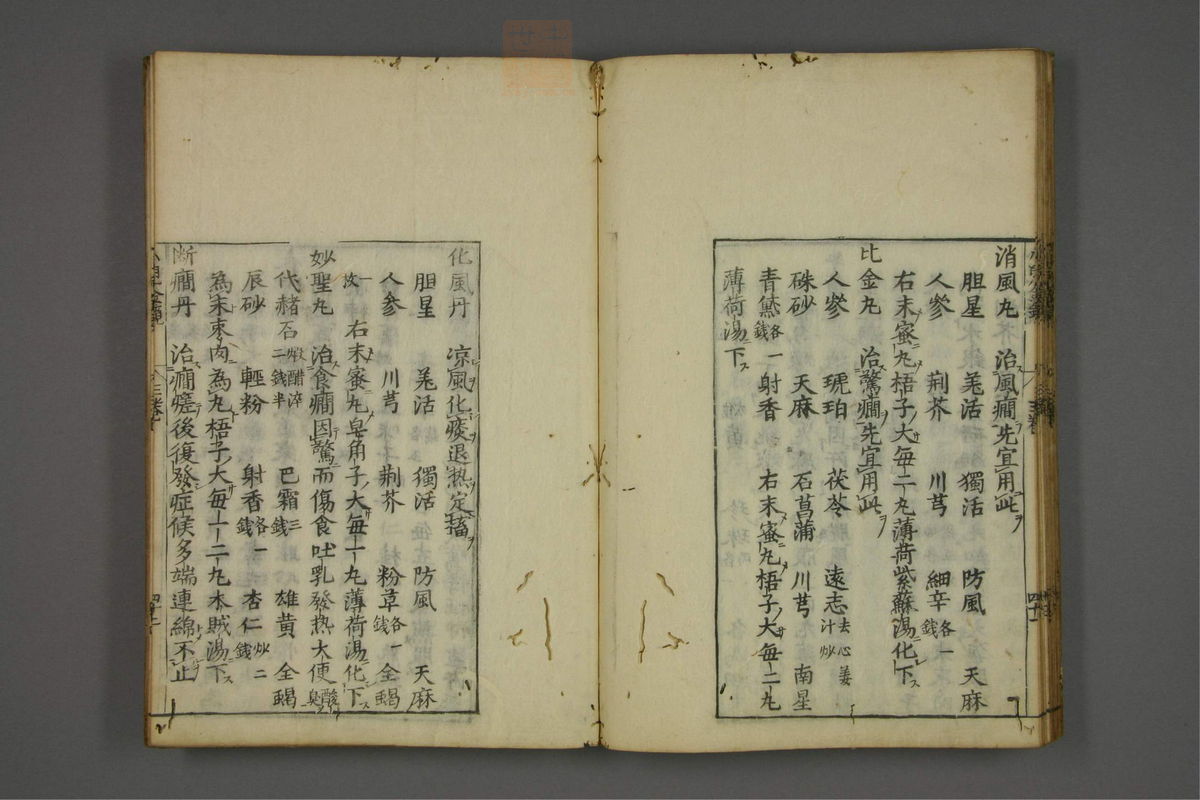 消風丸 治風癇先宜用此ヲ
胆星 羌活 獨活 防風 天麻
人參 荆芥 川芎 細辛各一錢
右末蜜丸梧子大每二丸薄荷紫蘇湯化下
比金丸 治驚癇先宜用此ヲ
人參 琥珀 茯苓 遠志去心姜汁炒
硃砂 天麻 石菖蒲 川芎 南星
青黛各一錢 射香 右末蜜丸梧子大每一二丸
薄荷湯下ス
化風丹 凉風化痰退热定搐ヲ
胆星 羌活 獨活 防風 天麻
人參 川芎 荆芥 粉草各一錢 全蝎
一枚 右末蜜丸皂角子大每一丸薄荷湯化下ス
妙聖丸 治食癇因驚而傷食吐乳發热大便酸臭
代赭石煅醋淬二錢半 巴霜三錢 雄黄 全蝎
辰砂 輕粉 射香各一錢 杏仁炒二錢
為末枣肉為丸梧子大每一二丸木賊湯下ス
断癇丹 治癇瘥後復發症候多端連綿不止